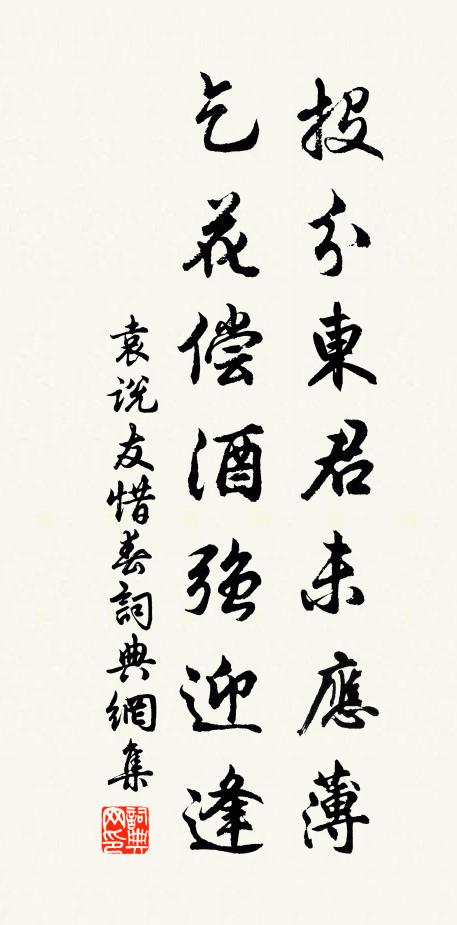 投分東君未應薄
乞花偿酒強迎逢
袁说友惜春詞典網集
詞典网印